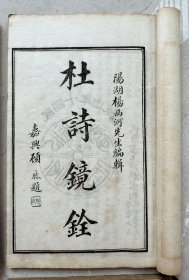 陽湖楊西河先生編輯
杜詩鏡銓
嘉興
題